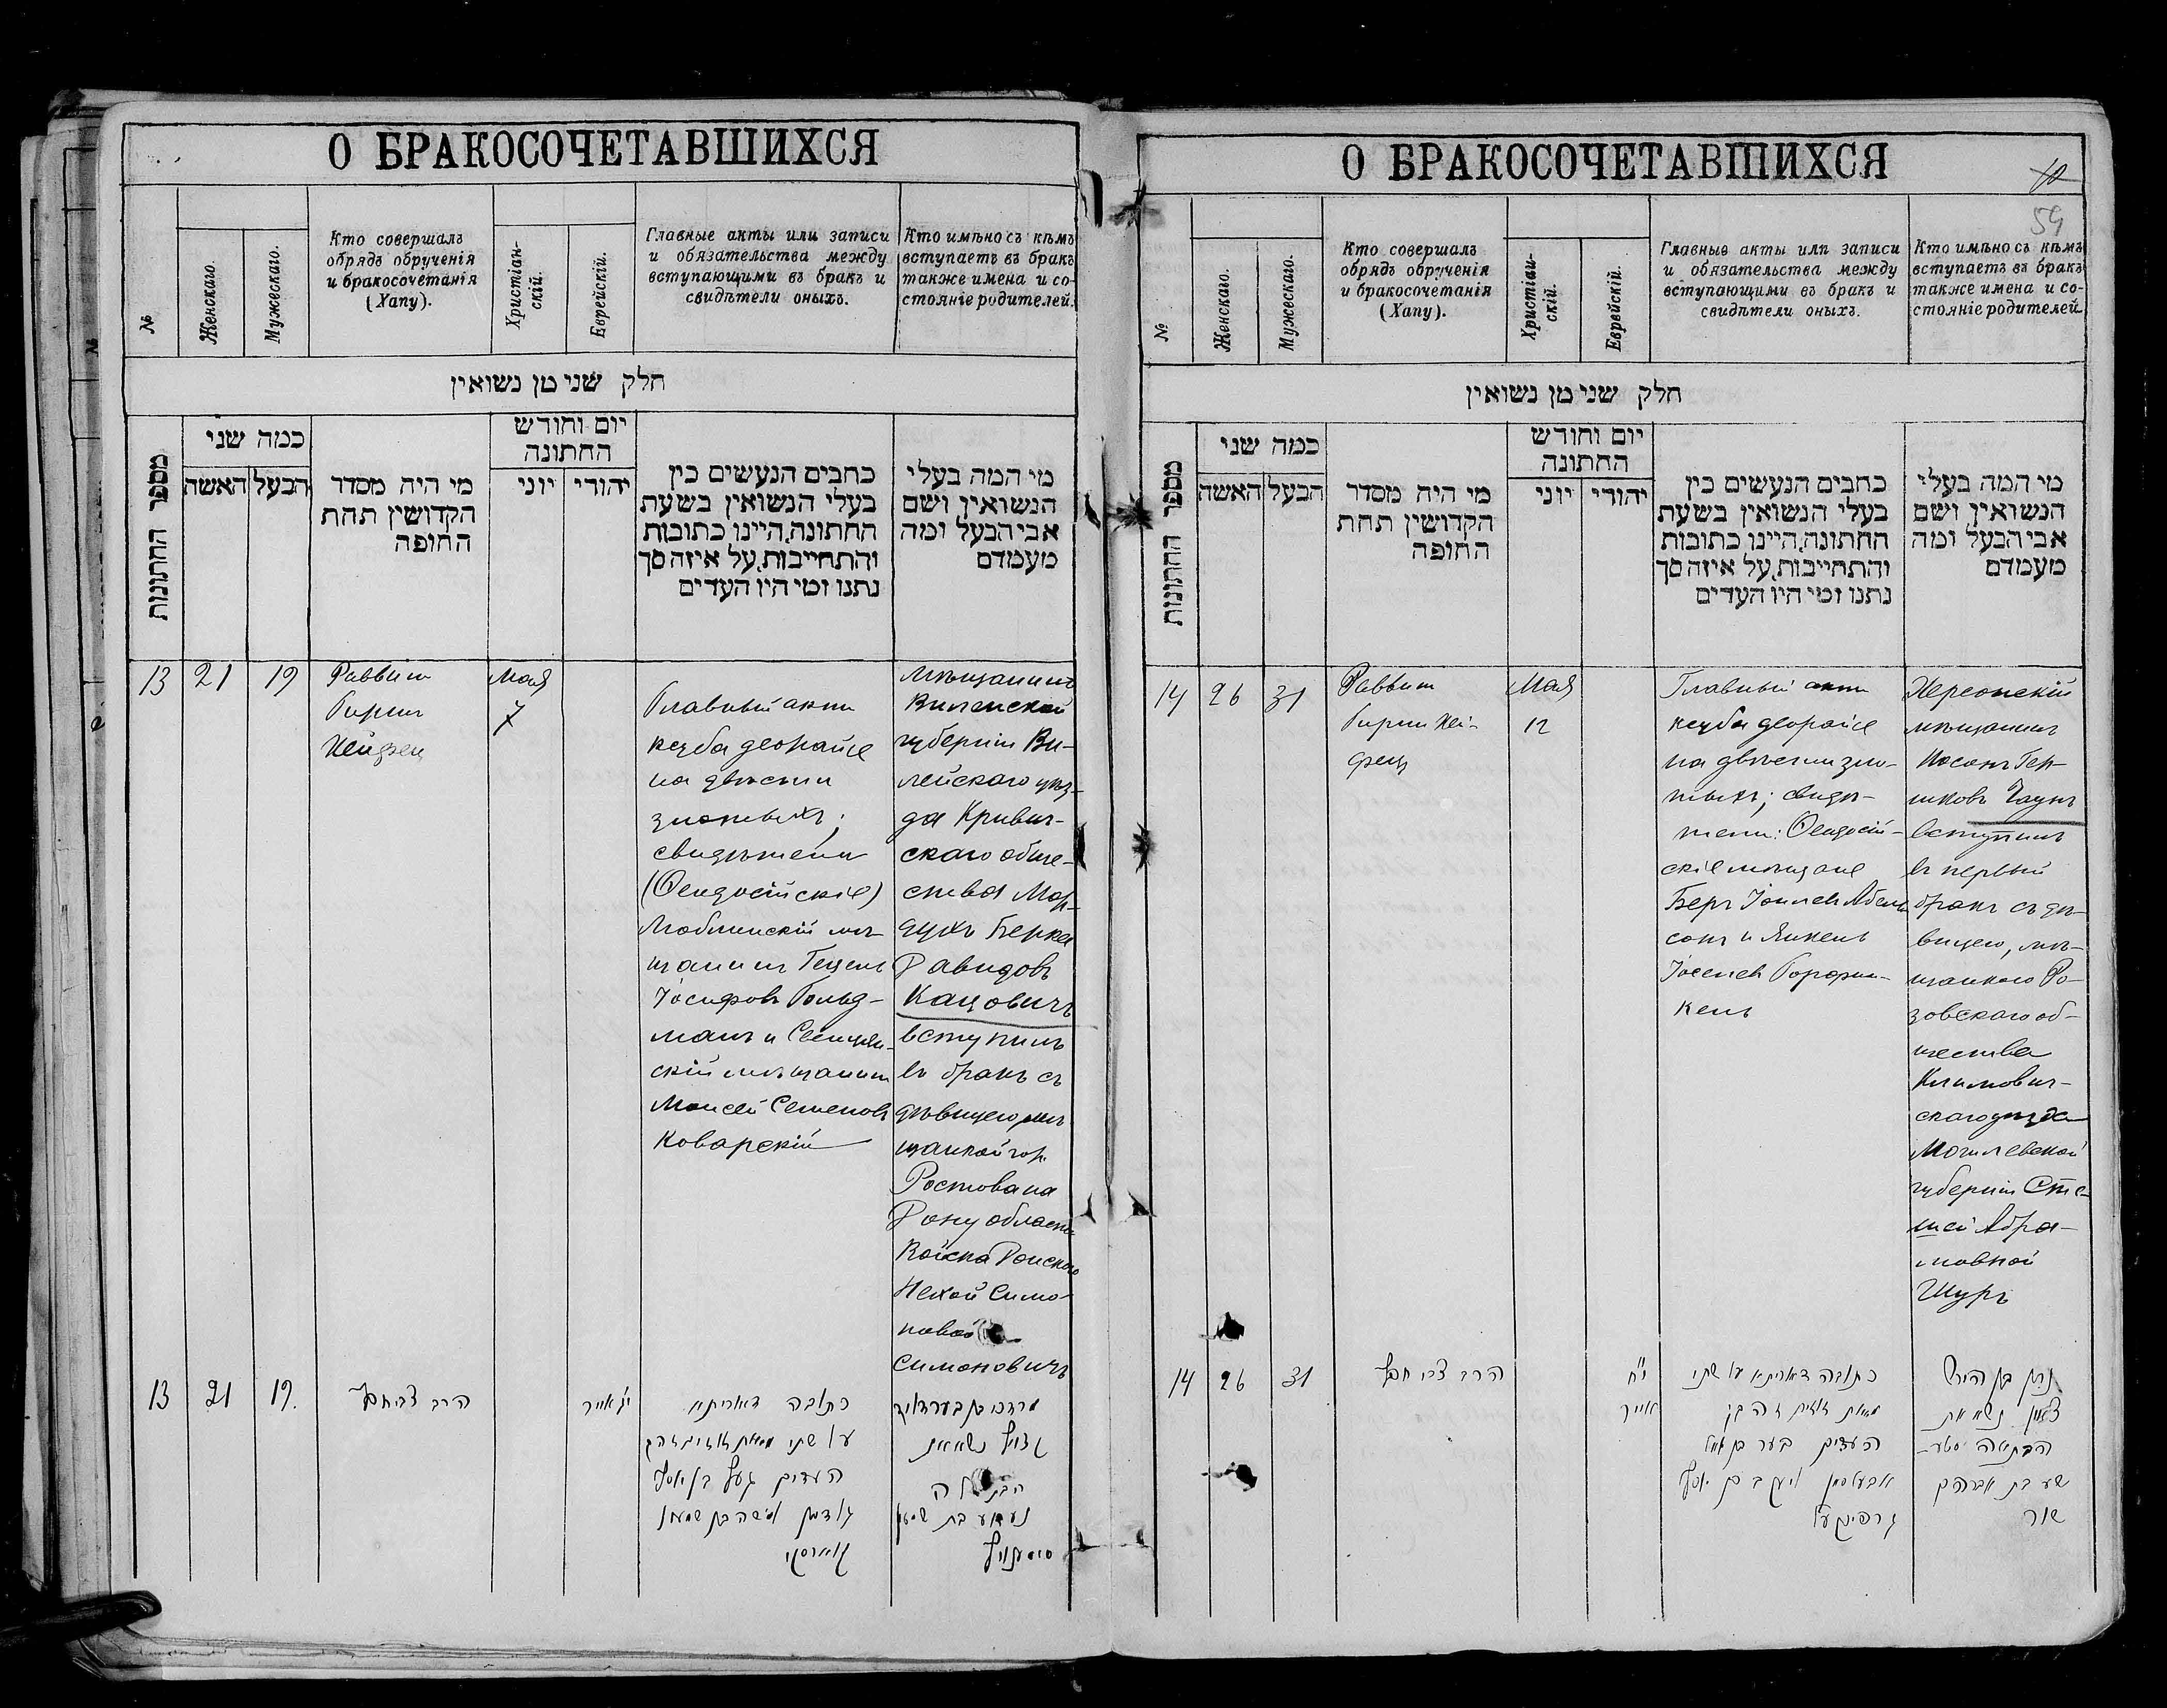 О БРАКОСОЧЕТАВШИХСЯ
№
Женскаго.
Мужескаго.
Кто совершалъ
обрядъ обрученія
и бракосочетанія
(Хапу).
Христіан-
скій.
Еврейскій.
Главные акты или записи
и обязательства между
вступающими въ бракъ и
свидѣтели оныхъ.
Кто имѣно съ кѣмъ
вступаетъ въ бракъ
также имена и со-
стояніе родителей.
חלק שני מן נשואין
מספר החתונות
כמה שני
האשה
הבעל
מי היה מסדר
הקדושין תחת
החופה
יום וחודש
החתונה
יוני
יהודי
כתבים הנעשים בין
בעלי הנשואין בשעת
החתונה, היינו כתובות
והתחייבות, על איזה סך
נתנו ומי היו העדים
מי המה בעלי
הנשואין ושם
אבי הבעל ומה
מעמדם
13
21
19
Раввинъ
Гиршъ
Хейфец
Мая
7
Главный актъ
кецба деорайсе
на двѣсти
злотыхъ;
свидѣтели
(Ѳеодосійскіе)
Люблинскій мѣ-
щанинъ Гецель
Іосифовъ Гольд-
манъ и Свенцян-
скій мѣщанинъ
Моисей Семеновъ
Коварскій
мѣщанинъ
Виленской
губерніи Ви-
лейскаго уѣз-
да Кривич-
скаго обще-
ства Мор-
духъ Берка
Давидовъ
Кацовичъ
вступилъ
въ бракъ съ
дѣвицею мѣ-
щанкой гор.
Ростова на
Дону области
Войска Донскаго
Нехой Симо-
новой
Симоновичъ
13
21
19.
הרב צבי חפץ
י״ג אייר
כתובה דאוריתא
על שתי מאות זוזים זהב
העדים געצל בן יוסף
גולדמן ומשה בן שמעון
קווארסקי
מרדכי בן בער דוד
קצוויץ נשא את
הבתולה
נעכע בת שמעון
סימענוויץ
О БРАКОСОЧЕТАВШИХСЯ
59
№
Женскаго.
Мужескаго.
Кто совершалъ
обрядъ обрученія
и бракосочетанія
(Хапу).
Христіан-
скій.
Еврейскій.
Главные акты или записи
и обязательства между
вступающими въ бракъ и
свидѣтели оныхъ.
Кто имѣно съ кѣмъ
вступаетъ въ бракъ
также имена и со-
стояніе родителей
חלק שני מן נשואין
מספר החתונות
כמה שני
האשה
הבעל
מי היה מסדר
הקדושין תחת
החופה
יום וחודש
החתונה
יוני
יהודי
כתבים הנעשים בין
בעלי הנשואין בשעת
החתונה, היינו כתובות
והתחייבות, על איזה סך
נתנו ומי היו העדים
מי המה בעלי
הנשואין ושם
אבי הבעל ומה
מעמדם
14
26
31
Раввинъ
Гирш Хей-
фец
Мая
12
Главный актъ
кецба деорайсе
на двѣсти зло-
тыхъ; свидѣ-
тели: Ѳеодосій-
скіе мѣщане
Беръ Іоилевъ Абель-
сонъ и Янкель
Іоселев Горфин-
кель
Херсонскій
мѣщанинъ
Носонъ Гер-
шковъ Чаунъ
вступилъ
въ первый
бракъ съ дѣ-
вицею, мѣ-
щанкою Ро-
зовскаго об-
щества
Климович-
скаго уѣзда
Могилевской
губерніи Сте-
шей Абра-
мовной
Шуръ
14
26
31
הרב צבי חפץ
י״ח
אייר
כתובה דאוריתא על שתי
מאות זוזים זהב
העדים בער בן יואל
אבעלסאן ויעקב בן יוסף
גרפינקעל
נתן בן הירש
צאון נשא את
הבתולה סטע-
שע בת אברהם
שור